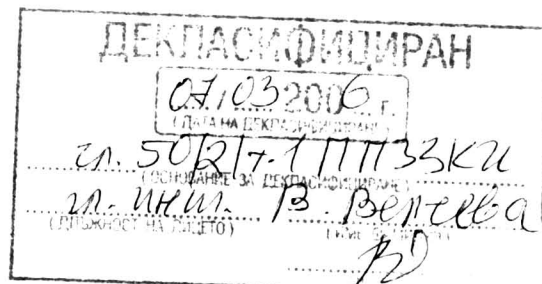 ДЕКЛАСИФИЦИРАН
07.03 2006 г.
(ДАТА НА ДЕКЛАСИФИЦИРАНЕ)
чл. 50/2/т.1 ППЗЗКИ
(ОСНОВАНИЕ ЗА ДЕКЛАСИФИЦИРАНЕ)
гл. инсп. В.
(ДЛЪЖНОСТ НА ЛИЦЕТО)